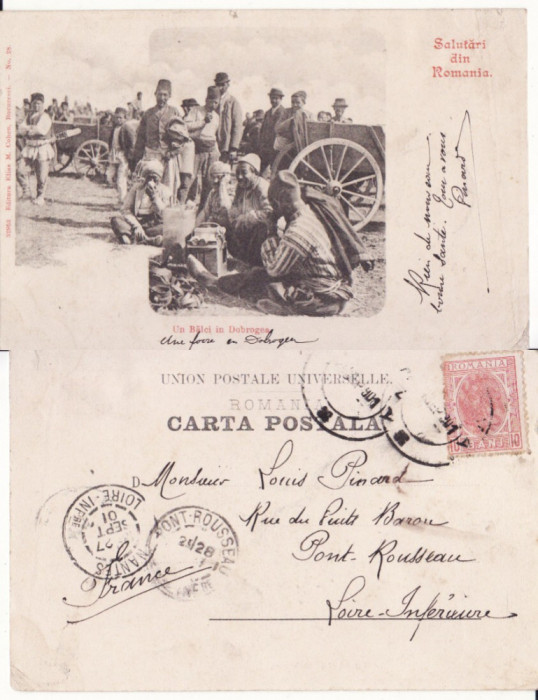 Salutări
din
Romania.
Editura Elias M. Cohen, Bucuresci. – No. 28.
Rien de nouveau
bonne santé. Tout a vous
Pinard
Un Bâlci in Dobrogea
Une foire en Dobrogea
UNION POSTALE UNIVERSELLE.
ROMANIA
CARTA POSTALA
ROMANIA
10 BANI 10
D Monsieur Louis Pinard
Rue du Puits Baron
Pont-Rousseau
Loire-Inférieure
France
LOIRE-INFRE
27
SEPT
01
NANTES
PONT-ROUSSEAU
28